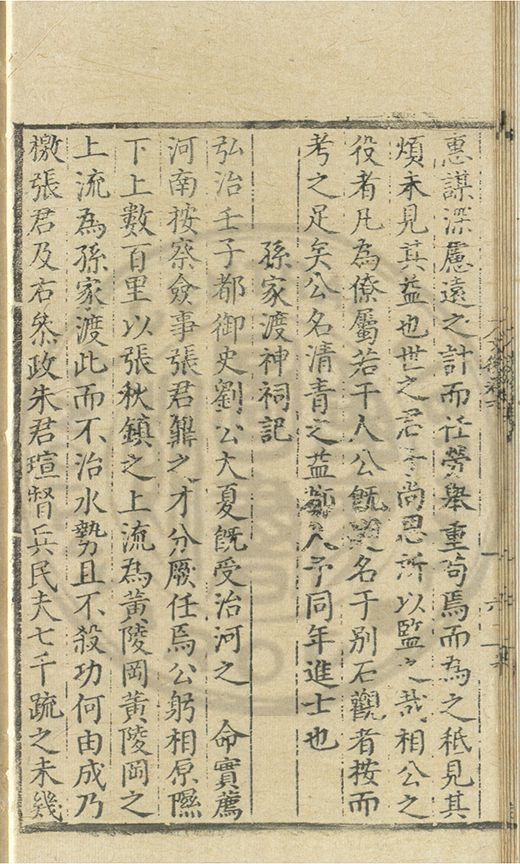 惠謀深慮遠之計而任勞舉重苟焉而為之秪見其
煩未見其益也世之君子尚思所以監之哉相公之
役者凡為僚屬若干人公旣名于別石觀者按而
考之足矣公名清青之益人予同年進士也
孫家渡神祠記
弘治壬子都御史劉公大夏旣受治河之 命實薦
河南按察僉事張君鼐之才分厥任焉公躬相原隰
下上數百里以張秋鎮之上流為黃陵岡黃陵岡之
上流為孫家渡此而不治水勢且不殺功何由成乃
檄張君及右叅政朱君瑄督兵民夫七千疏之未幾